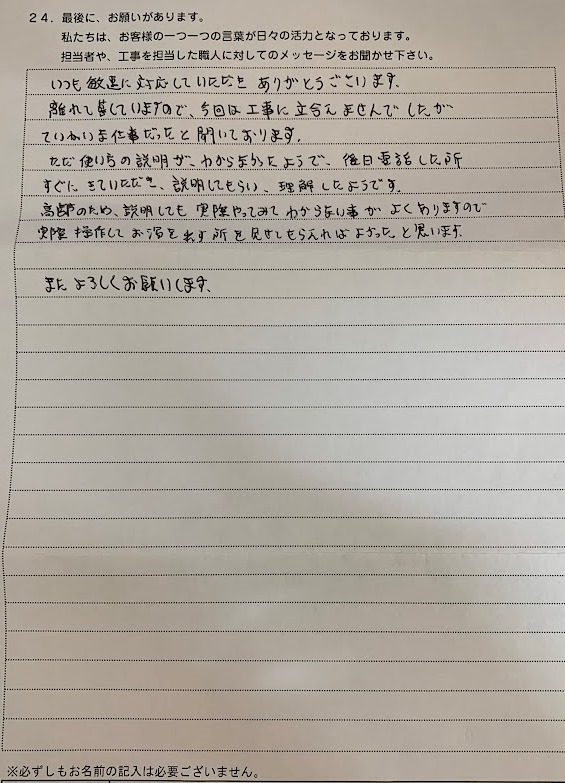 24．最後に、お願いがあります。
私たちは、お客様の一つ一つの言葉が日々の活力となっております。
担当者や、工事を担当した職人に対してのメッセージをお聞かせ下さい。
いつも敏速に対応していただき ありがとうございます。
離れて暮していますので、今回は工事に立合えませんでしたが
ていねいな仕事だったと聞いております。
ただ使い方の説明が、わからなかったようで、後日電話した所
すぐにきていただき、説明してもらい、理解したようです。
高齢のため、説明しても実際やってみてわからない事がよくありますので
実際操作してお湯を出す所を見せてもらえればよかったと思います。
またよろしくお願いします。
※必ずしもお名前の記入は必要ございません。